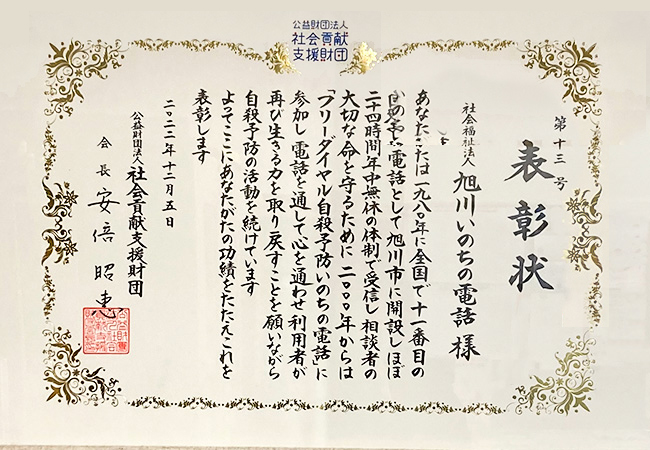 公益財団法人
社会貢献
支援財団
第十三号
表彰状
社会福祉法人
旭川いのちの電話 様
あなたたちは一九八〇年に全国で十一番目の
いのちの電話として旭川市に開設しほぼ
二十四時間年中無休の体制で受信し相談者の
大切な命を守るために二〇〇〇年からは
「フリーダイヤル自殺予防いのちの電話」に
参加し電話を通して心を通わせ利用者が
再び生きる力を取り戻すことを願いながら
自殺予防の活動を続けています
よってここにあなたがたの功績をたたえこれを
表彰します
二〇二二年十二月五日
公益財団法人 社会貢献支援財団
会長 安倍昭恵